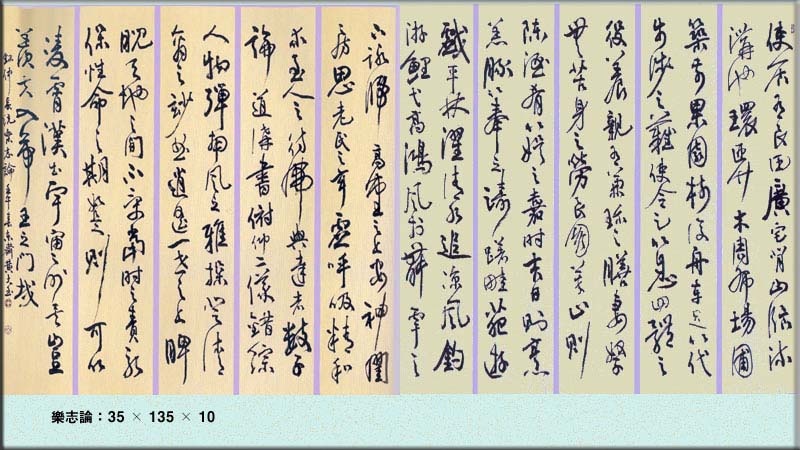 使居有良田廣宅背山臨流
溝池環匝竹木周布場圃
築前果園樹後舟車足以代
步涉之難使令足以息四體之
役養親有兼珍之膳妻孥
無苦身之勞良朋萃止則
陳酒肴以娛之嘉時吉日則烹
羔豚以奉之躊躇畦苑遊
戲平林濯清水追涼風釣
游鯉弋高鴻風於舞雩之
下詠歸高堂之上安神閨
房思老氏之玄虛呼吸精和
求至人之彷彿與達者數子
論道講書俯仰二儀錯綜
人物彈南風之雅操發清
商之妙曲逍遙一世之上睥
睨天地之間不受當時之責永
保性命之期如是則可以
凌霄漢出宇宙之外矣豈
羨夫入帝王之門哉
錄仲長統樂志論
樂志論：35 × 135 × 10